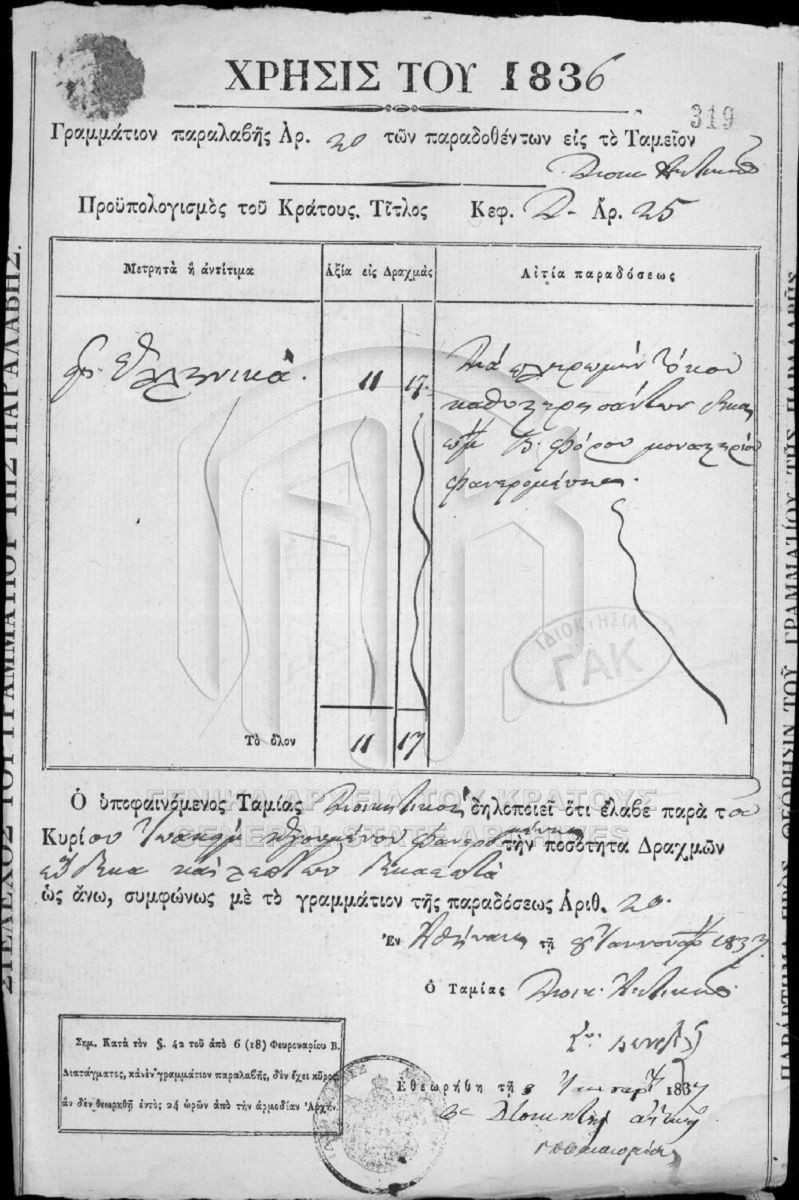 ΧΡΗΣΙΣ ΤΟΥ 1836
319
Γραμμάτιον παραλαβῆς Ἀρ. 20 τῶν παραδοθέντων εἰς τὸ Ταμεῖον
Προϋπολογισμὸς τοῦ Κράτους. Τίτλος Κεφ. Ἀρ. 25
Μετρητὰ ἢ ἀντίτιμα
Ἀξία εἰς Δραχμὰς
Αἰτία παραδόσεως
Ἑλληνικὰ. 11 17.
Διὰ πληρωμὴν τόκου
καθυστερησάντων
φόρου μοναστηρίου
Φανερωμένης.
ΙΔΙΟΚΤΗΣΙΑ
ΓΑΚ
Τὸ ὅλον 11 17
ΓΕΝΙΚΑ ΑΡΧΕΙΑ ΤΟΥ ΚΡΑΤΟΥΣ
GENERAL STATE ARCHIVES
Ὁ ὑποφαινόμενος Ταμίας δηλοποιεῖ ὅτι ἔλαβε παρὰ τοῦ
Κυρίου τὴν ποσότητα Δραχμῶν
ἕνδεκα καὶ λεπτῶν δεκαεπτὰ
ὡς ἄνω, συμφώνως μὲ τὸ γραμμάτιον τῆς παραδόσεως Ἀριθ. 20.
Ἐν Ἀθήναις τῇ 8 Ἰαννουαρ 1837
Ὁ Ταμίας
Σημ. Κατὰ τὸν §. 42 τοῦ ἀπὸ 6 (18) Φευρουαρίου Β.
Διατάγματος, κἀνὲν γραμμάτιον παραλαβῆς, δὲν ἔχει κῦρος
ἂν δὲν θεωρηθῇ ἐντὸς 24 ὡρῶν ἀπὸ τὴν ἁρμοδίαν Ἀρχήν.
Ἐθεωρήθη τῇ 8 1837
ΣΤΕΛΕΧΟΣ ΤΟΥ ΓΡΑΜΜΑΤΙΟΥ ΤΗΣ ΠΑΡΑΛΑΒΗΣ.
ΠΑΡΑΡΤΗΜΑ ΠΡΟΣ ΘΕΩΡΗΣΙΝ ΤΟΥ ΓΡΑΜΜΑΤΙΟΥ ΤΗΣ ΠΑΡΑΛΑΒΗΣ